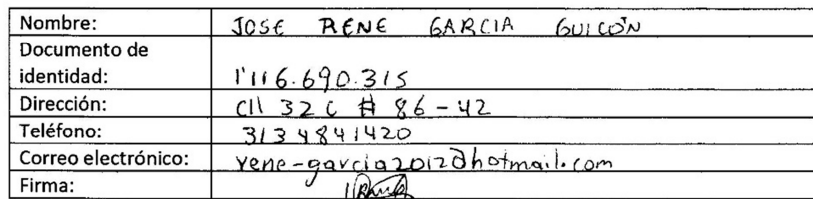 Nombre: JOSE RENE GARCIA GUICÓN
Documento de
identidad: 1'116.690.315
Dirección: Cll 32 C # 86-42
Teléfono: 3134841420
Correo electrónico: rene-garcia2012@hotmail.com
Firma: